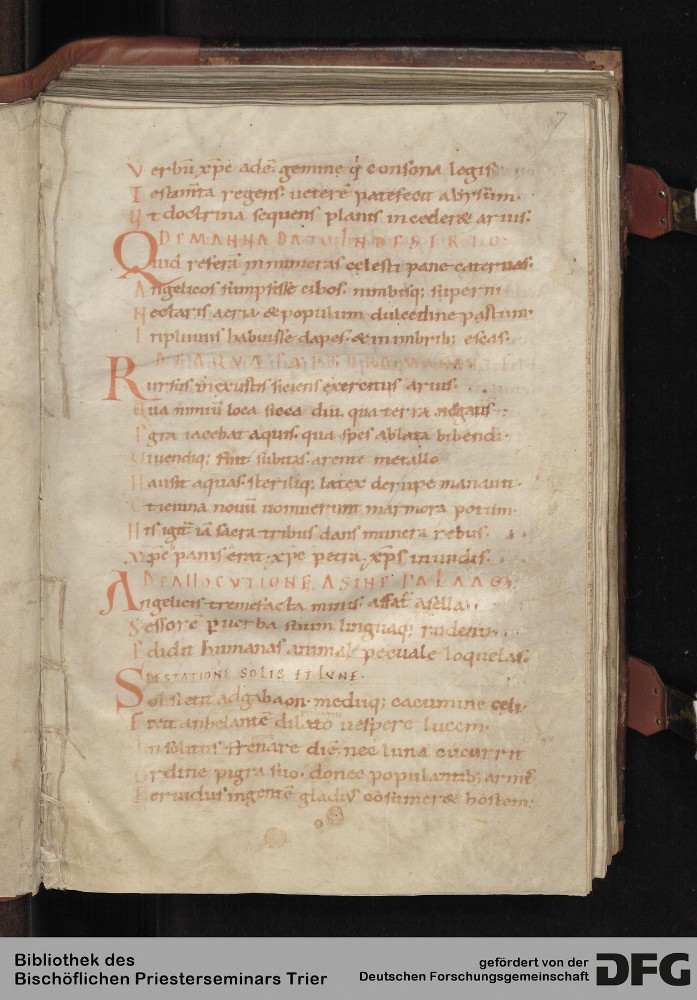 7
Verbū xp̄e adē. gemine q; consona legis
Testam̄ta regens. ueterē patefecit abysum.
Ut doctrina sequens planis incederæ aruis.
DE MANNA DATO IN DESERTO
Quid referā innumeras celesti pane cateruas.
Angelicos sumpsisse cibos. nimbisq; superni
Nectaris aeria. & populum dulcedine pastum.
In pluuiis habuisse dapes. & in imbrib; escas.
DE AQVA
Rursus in exustis sitiens exercitus aruis.
Qua nimiū loca sicca diu. qua terra negatis.
Egra iacebat aquis. qua spes ablata bibendi.
Viuendiq; fuit. subitas. arente metallo
Hausit aquas. steriliq; latex de rupe manauit.
Et ieiuna nouū uomuerunt marmora potum.
His igit̄ iā sacra tribus dans munera rebus.
xp̄e panis erat. xp̄e petra. xp̄s in undis.
DE ALLOCVTIONE ASINE BALAAM
Angelicis tremefacta minis. affat̄ asella.
Sessorē per uerba suum linguaq; rudenti.
Edidit humanas animal pecuale loquelas.
DE STATIONE SOLIS ET LVNE.
Sol stetit ad gabaon. mediiq; cacumine celi.
Fixit anhelantē dilato uespere lucem.
Insolitus frenare diē. nec luna cucurrit
Ordine pigra suo. donec populantib; armis
Feruidus ingentē gladius cōsumeræ hostem.
Bibliothek des
Bischöflichen Priesterseminars Trier
gefördert von der
Deutschen Forschungsgemeinschaft
DFG